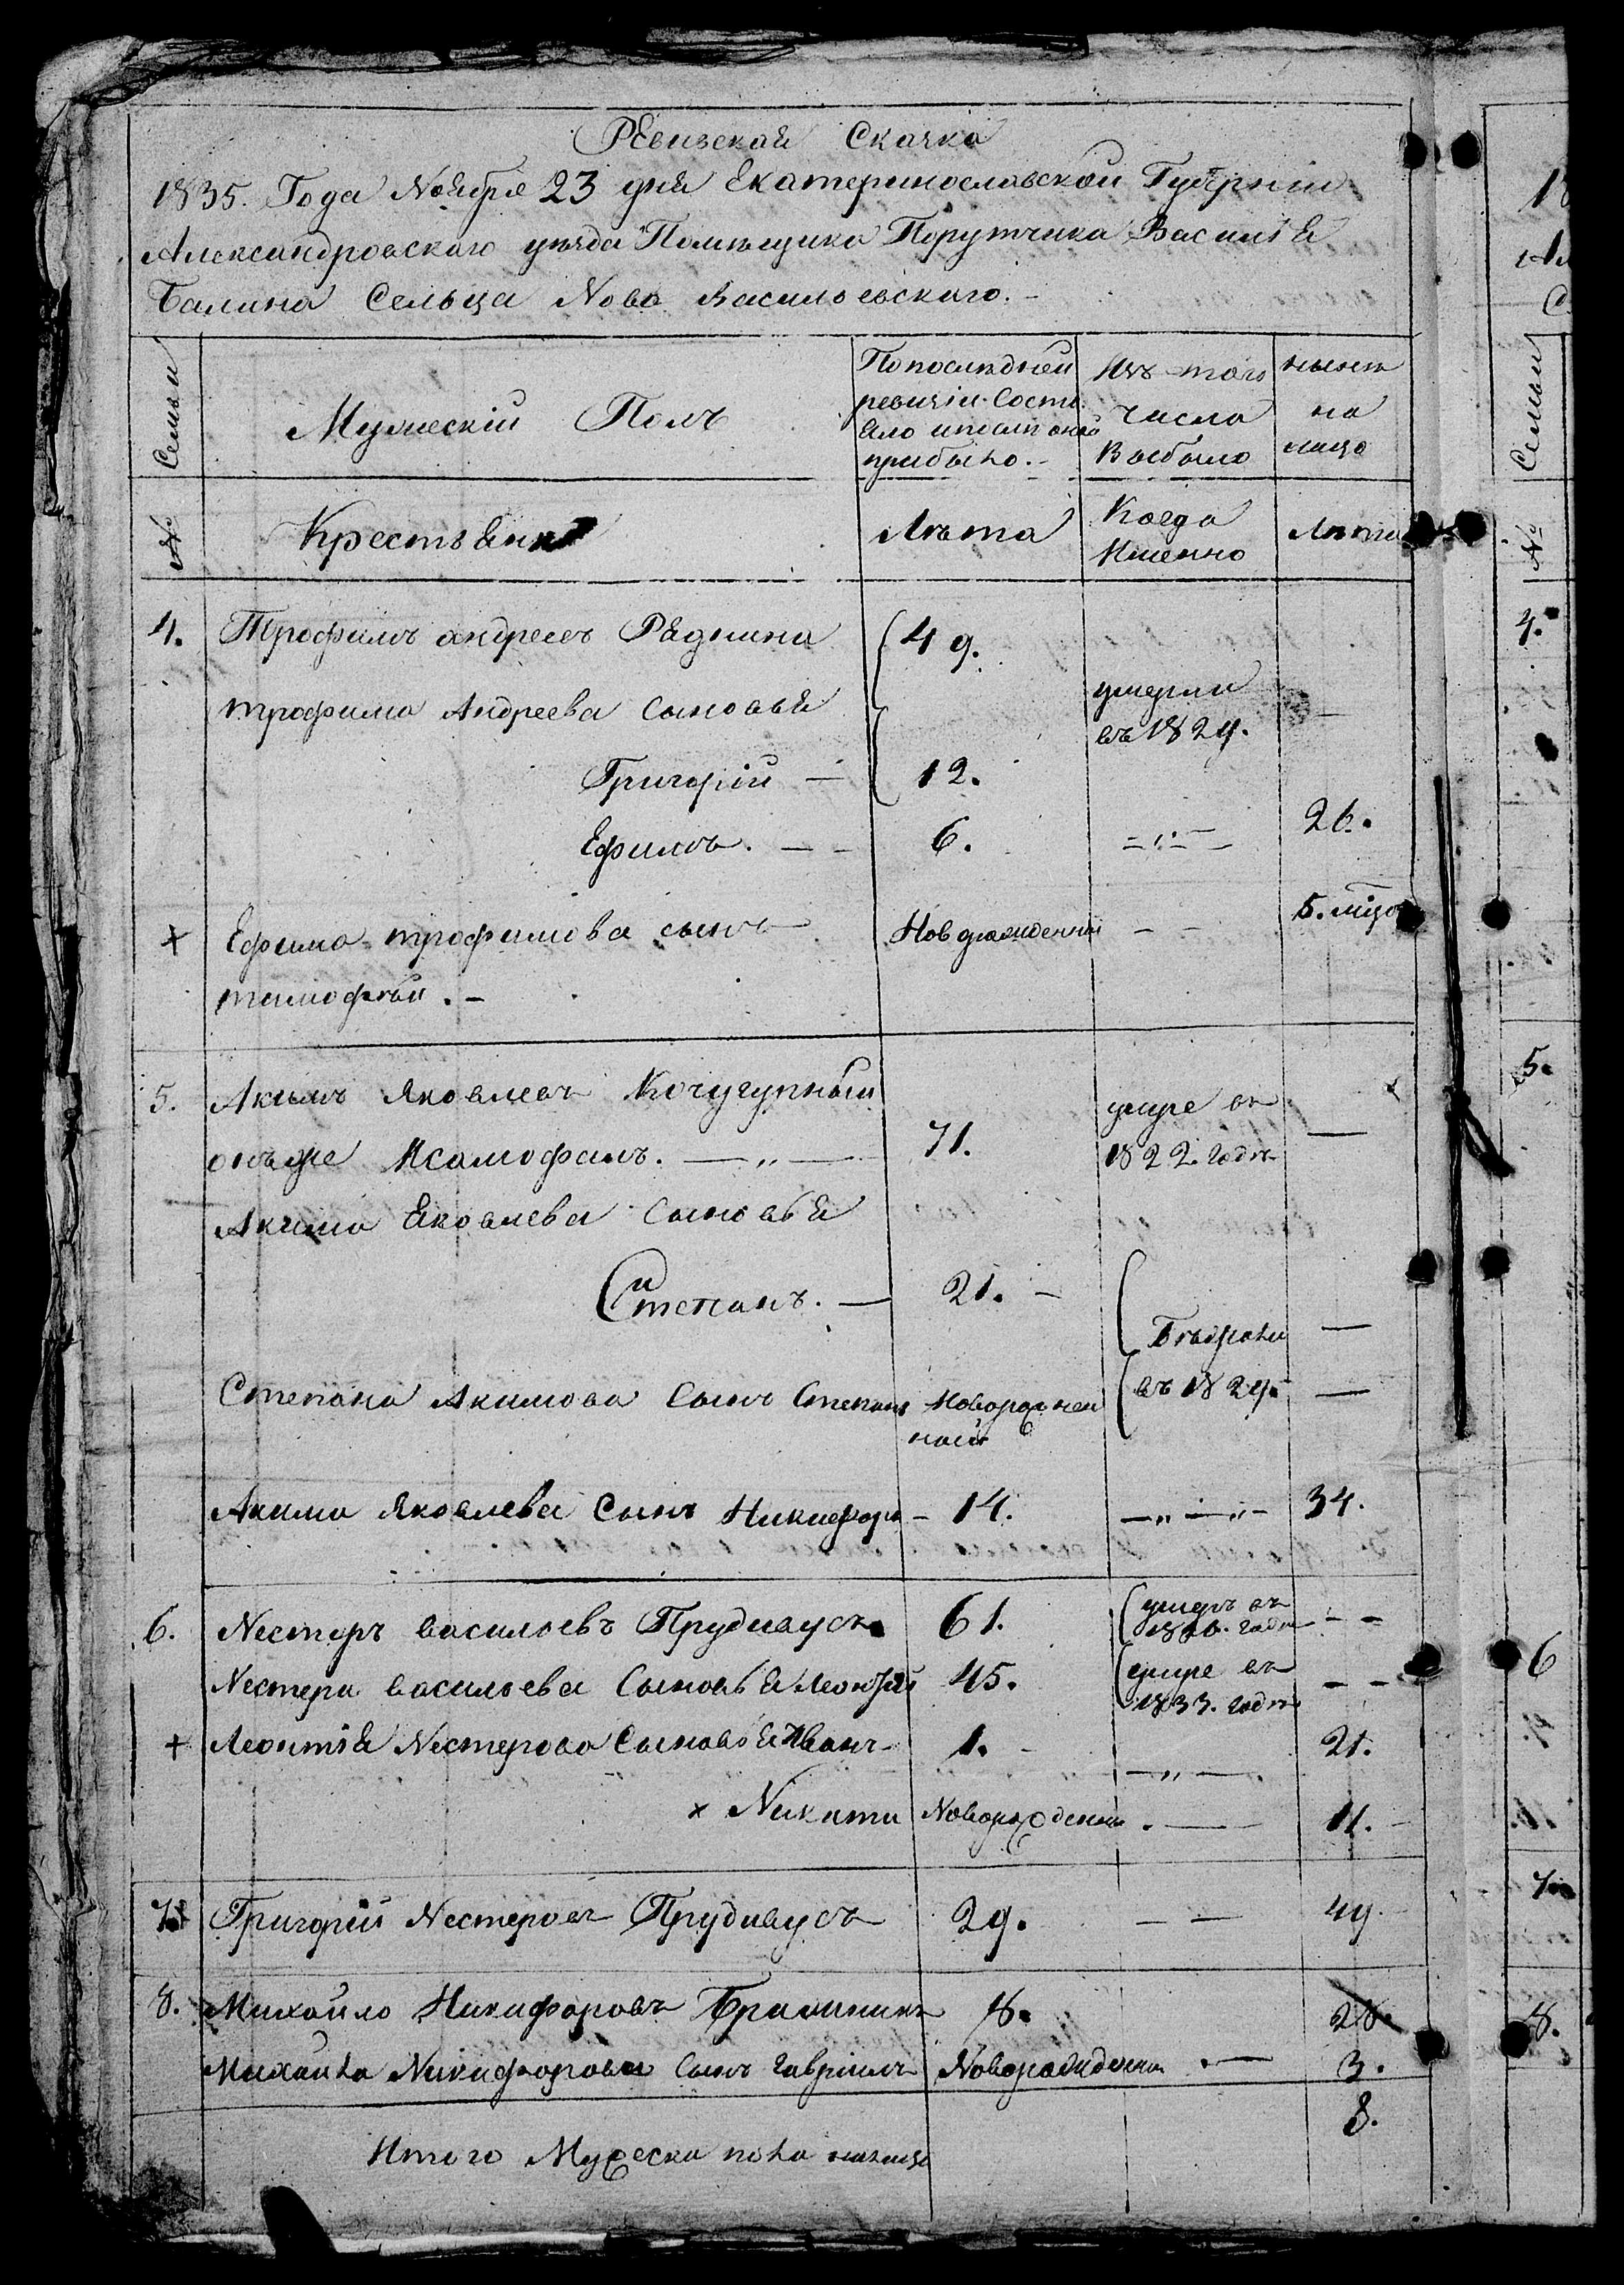 Ревизская Скачка
1835. Года Ноября 23 дня Екатеринославской Губернии
Александровскаго уезда Помещика Порутчика Василія
Балина Сельца Ново Васильевскаго. -
Семьи
Мужескій Полъ
По последней
ревизіи состо
яло и после оной
прибыло. -
Изъ того
числа
Выбыло
ныне
на
лицо
№
Крестьяне
Лета
Когда
Именно
Лета
4. Трофимъ андреевъ Редкина 49.
трофима Андреева сыновья умерли
въ 1824. -
Григорій - 12.
Ефимъ. - - 6. 26.
+ Ефима трофимова сынъ Новорожденный - - 5. мцов
тимофей. -
5. Акимъ Яковлевъ умре въ
онъ же 71. 1822. годе -
Акима Яковлева сыновья
Степанъ. - 21. -
Бежали -
Степана Акимова Сынъ Степанъ Новорожден въ 1829. -
ной
Акима Яковлева Сынъ Никифоръ - 14. 34.
6. Nестеръ васильевъ Прудивусъ 61. умеръ въ - -
годе
Nестера васильева Сыновья Леонтій 45. умре въ - -
1833. годе
+ Леонтія Nестерова Сыновья Иванъ - 1. - 21.
× Nикита Nоворожденны . - 11. -
7. Григорій Nестеровъ Прудивусъ 29. - - 49.
8. Михайло Никифоровъ 8. 28.
Михайла Nикифорова сынъ Гавріилъ Nоворожденны . - 3.
8.
Итого Мужеска пола налицо
Семьи
№
4.
5.
6
7.
8.